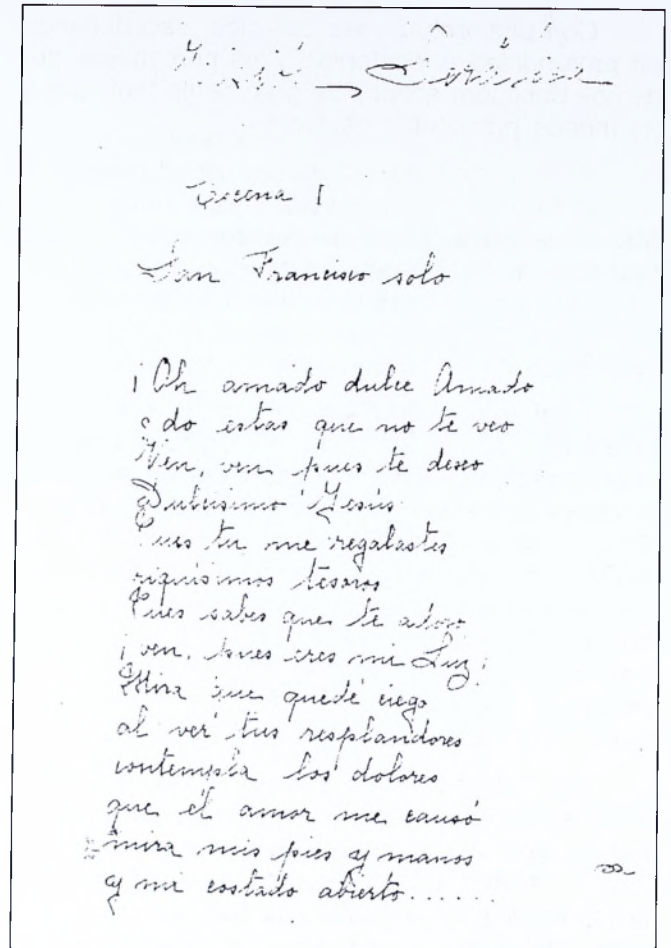 Escena I
San Francisco solo
¡Oh amado dulce Amado
do estas que no te veo
Ven, ven pues te deseo
Dulcisimo Jesús
Pues tu me regalastes
riquisimos tesoros
Pues sabes que te adoro
¡ven, pues eres mi Luz!
Mira que quedé ciego
al ver tus resplandores
contempla los dolores
que él amor me causó
mira mis pies y manos
y mi costado abierto......